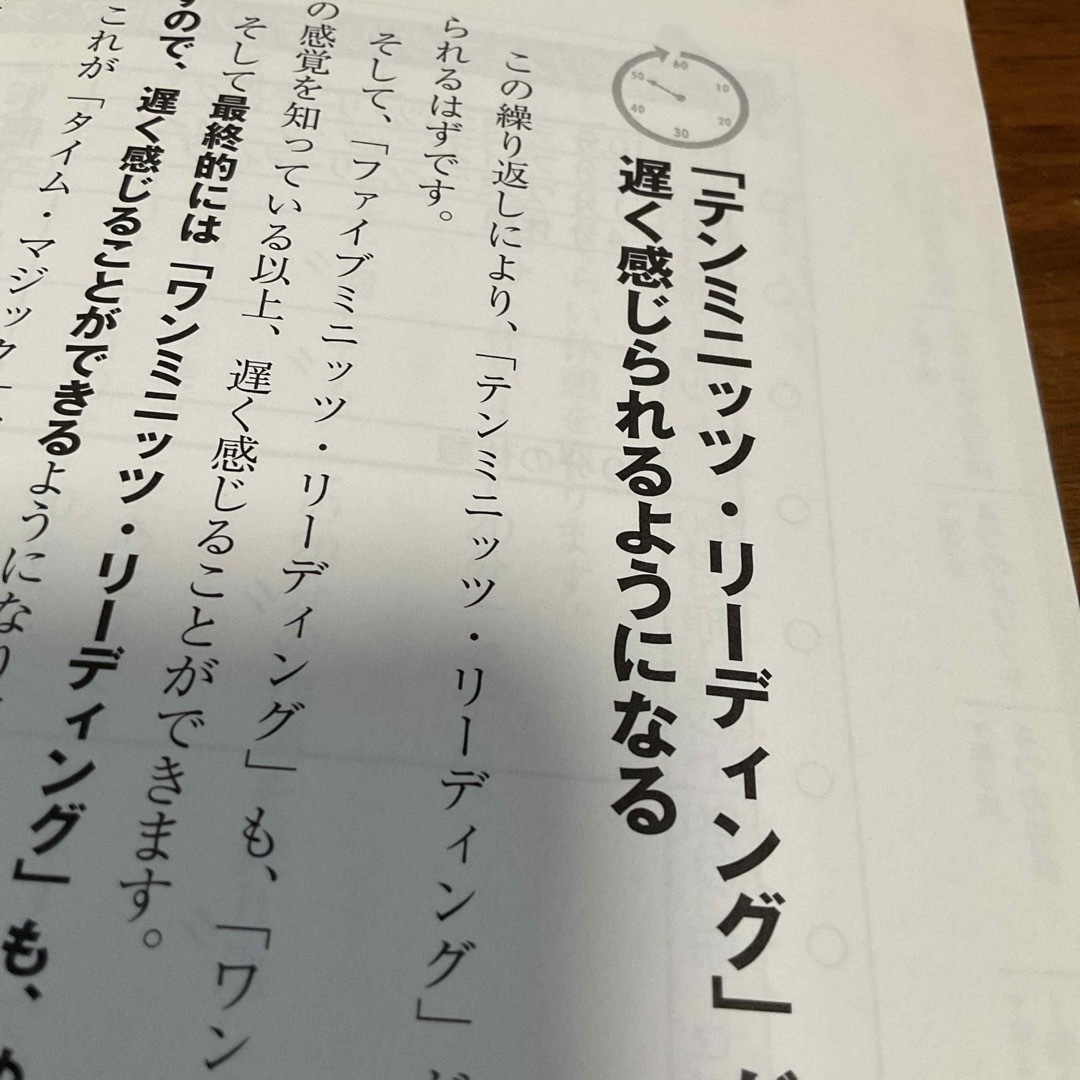 「テンミニッツ・リーディング」が
遅く感じられるようになる
この繰り返しにより、「テンミニッツ・リーディング」が
られるはずです。
そして、「ファイブミニッツ・リーディング」も、「ワン
の感覚を知っている以上、遅く感じることができます。
そして最終的には「ワンミニッツ・リーディング」も、
ので、遅く感じることができるようになり
これが「タイム・マジック」
60
10
20
30
40
50